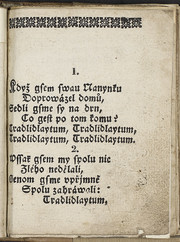 1.
Když gsem swau Nanynku
Doprowázel domů,
Sedli gsme sy na drn,
Co gest po tom komu?
Tradlidlaytum, Tradlidlaytum,
Tradlidlaytum, Tradlidlaytum.
2.
Wssak gsem my spolu nic
Zlého nedělali,
Genom gsme vpřjmně
Spolu zahráwali:
Tradlidlaytum,